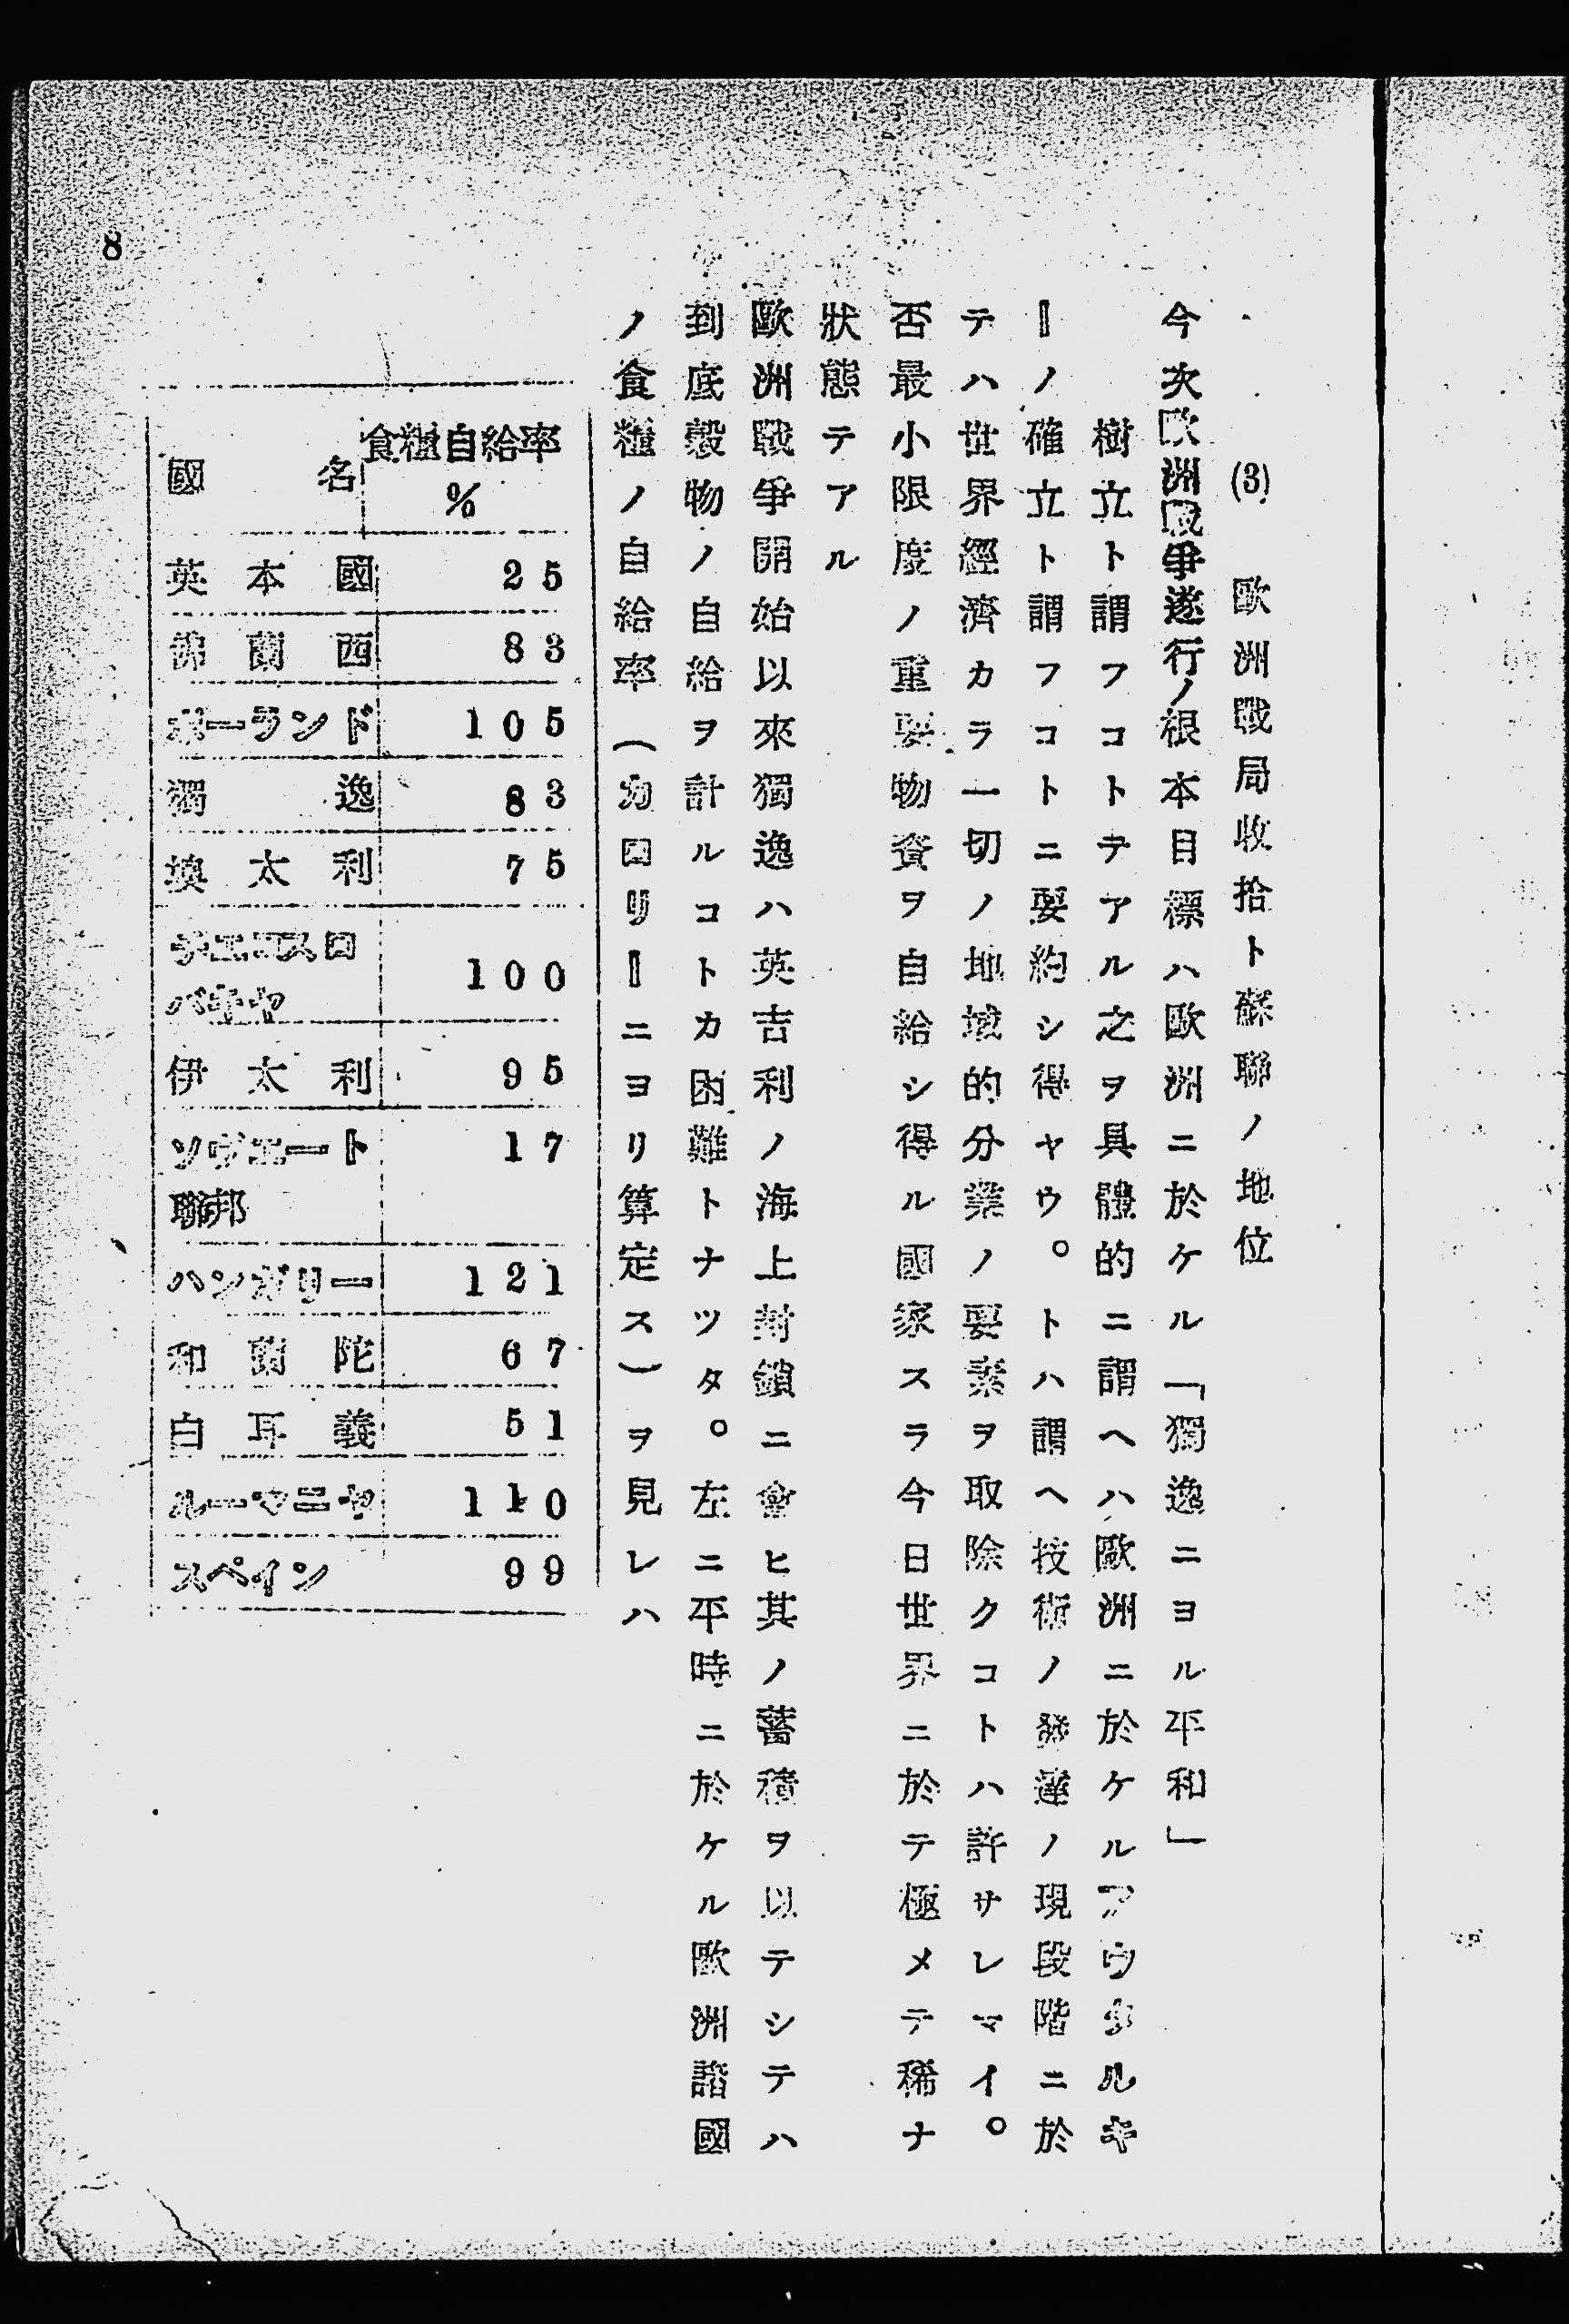 (3) 歐洲戰局收拾ト蘇聯ノ地位
今次歐洲戰爭遂行ノ根本目標ハ歐洲ニ於ケル「獨逸ニヨル平和」
樹立ト謂フコトテアル之ヲ具體的ニ謂ヘハ歐洲ニ於ケルアウタルキ
ーノ確立ト謂フコトニ要約シ得ヤウ。トハ謂ヘ技術ノ發達ノ現段階ニ於
テハ世界經濟カラ一切ノ地域的分業ノ要素ヲ取除クコトハ許サレマイ。
否最小限度ノ重要物資ヲ自給シ得ル國家スラ今日世界ニ於テ極メテ稀ナ
狀態テアル
歐洲戰爭開始以來獨逸ハ英吉利ノ海上封鎖ニ會ヒ其ノ蓄積ヲ以テシテハ
到底穀物ノ自給ヲ計ルコトカ困難トナツタ。左ニ平時ニ於ケル歐洲諸國
ノ食糧ノ自給率(カロリーニヨリ算定ス)ヲ見レハ
國名 食糧自給率%
英本國 25
佛蘭西 83
ポーランド 105
獨逸 83
墺太利 75
チエコスロバキヤ 100
伊太利 95
ソヴエート聯邦 17
ハンガリー 121
和蘭陀 67
白耳義 51
ルーマニヤ 110
スペイン 99
8